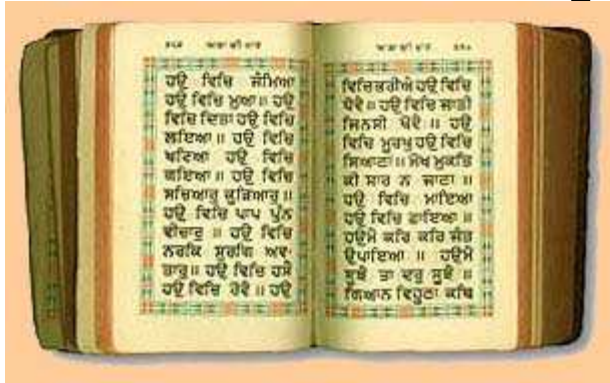 ਆਸਾ ਦੀ ਵਾਰ
ਹਉ ਵਿਚਿ ਜੰਮਿਆ
ਹਉ ਵਿਚਿ ਮੁਆ॥ ਹਉ
ਵਿਚਿ ਦਿਤਾ ਹਉ ਵਿਚਿ
ਲਇਆ ॥ ਹਉ ਵਿਚਿ
ਖਟਿਆ ਹਉ ਵਿਚਿ
ਗਇਆ॥ ਹਉ ਵਿਚਿ
ਸਚਿਆਰੁ ਕੂੜਿਆਰੁ॥
ਹਉ ਵਿਚਿ ਪਾਪ ਪੁੰਨ
ਵੀਚਾਰੁ ॥ ਹਉ ਵਿਚਿ
ਨਰਕਿ ਸੁਰਗਿ ਅਵ-
ਤਾਰੁ॥ ਹਉ ਵਿਚਿ ਹਸੈ
ਹਉ ਵਿਚਿ ਰੋਵੈ ॥ ਹਉ
ਆਸਾ ਦੀ ਵਾਰ
ਵਿਚਿ ਭਰੀਐ ਹਉ ਵਿਚਿ
ਧੋਵੈ ॥ ਹਉ ਵਿਚਿ ਜਾਤੀ
ਜਿਨਸੀ ਖੋਵੈ ॥ ਹਉ
ਵਿਚਿ ਮੂਰਖੁ ਹਉ ਵਿਚਿ
ਸਿਆਣਾ॥ ਮੋਖ ਮੁਕਤਿ
ਕੀ ਸਾਰ ਨ ਜਾਣਾ ॥
ਹਉ ਵਿਚਿ ਮਾਇਆ
ਹਉ ਵਿਚਿ ਛਾਇਆ ॥
ਹਉਮੈ ਕਰਿ ਕਰਿ ਜੰਤ
ਉਪਾਇਆ ॥ ਹਉਮੈ
ਬੂਝੈ ਤਾ ਦਰੁ ਸੂਝੈ ॥
ਗਿਆਨ ਵਿਹੂਣਾ ਕਥਿ